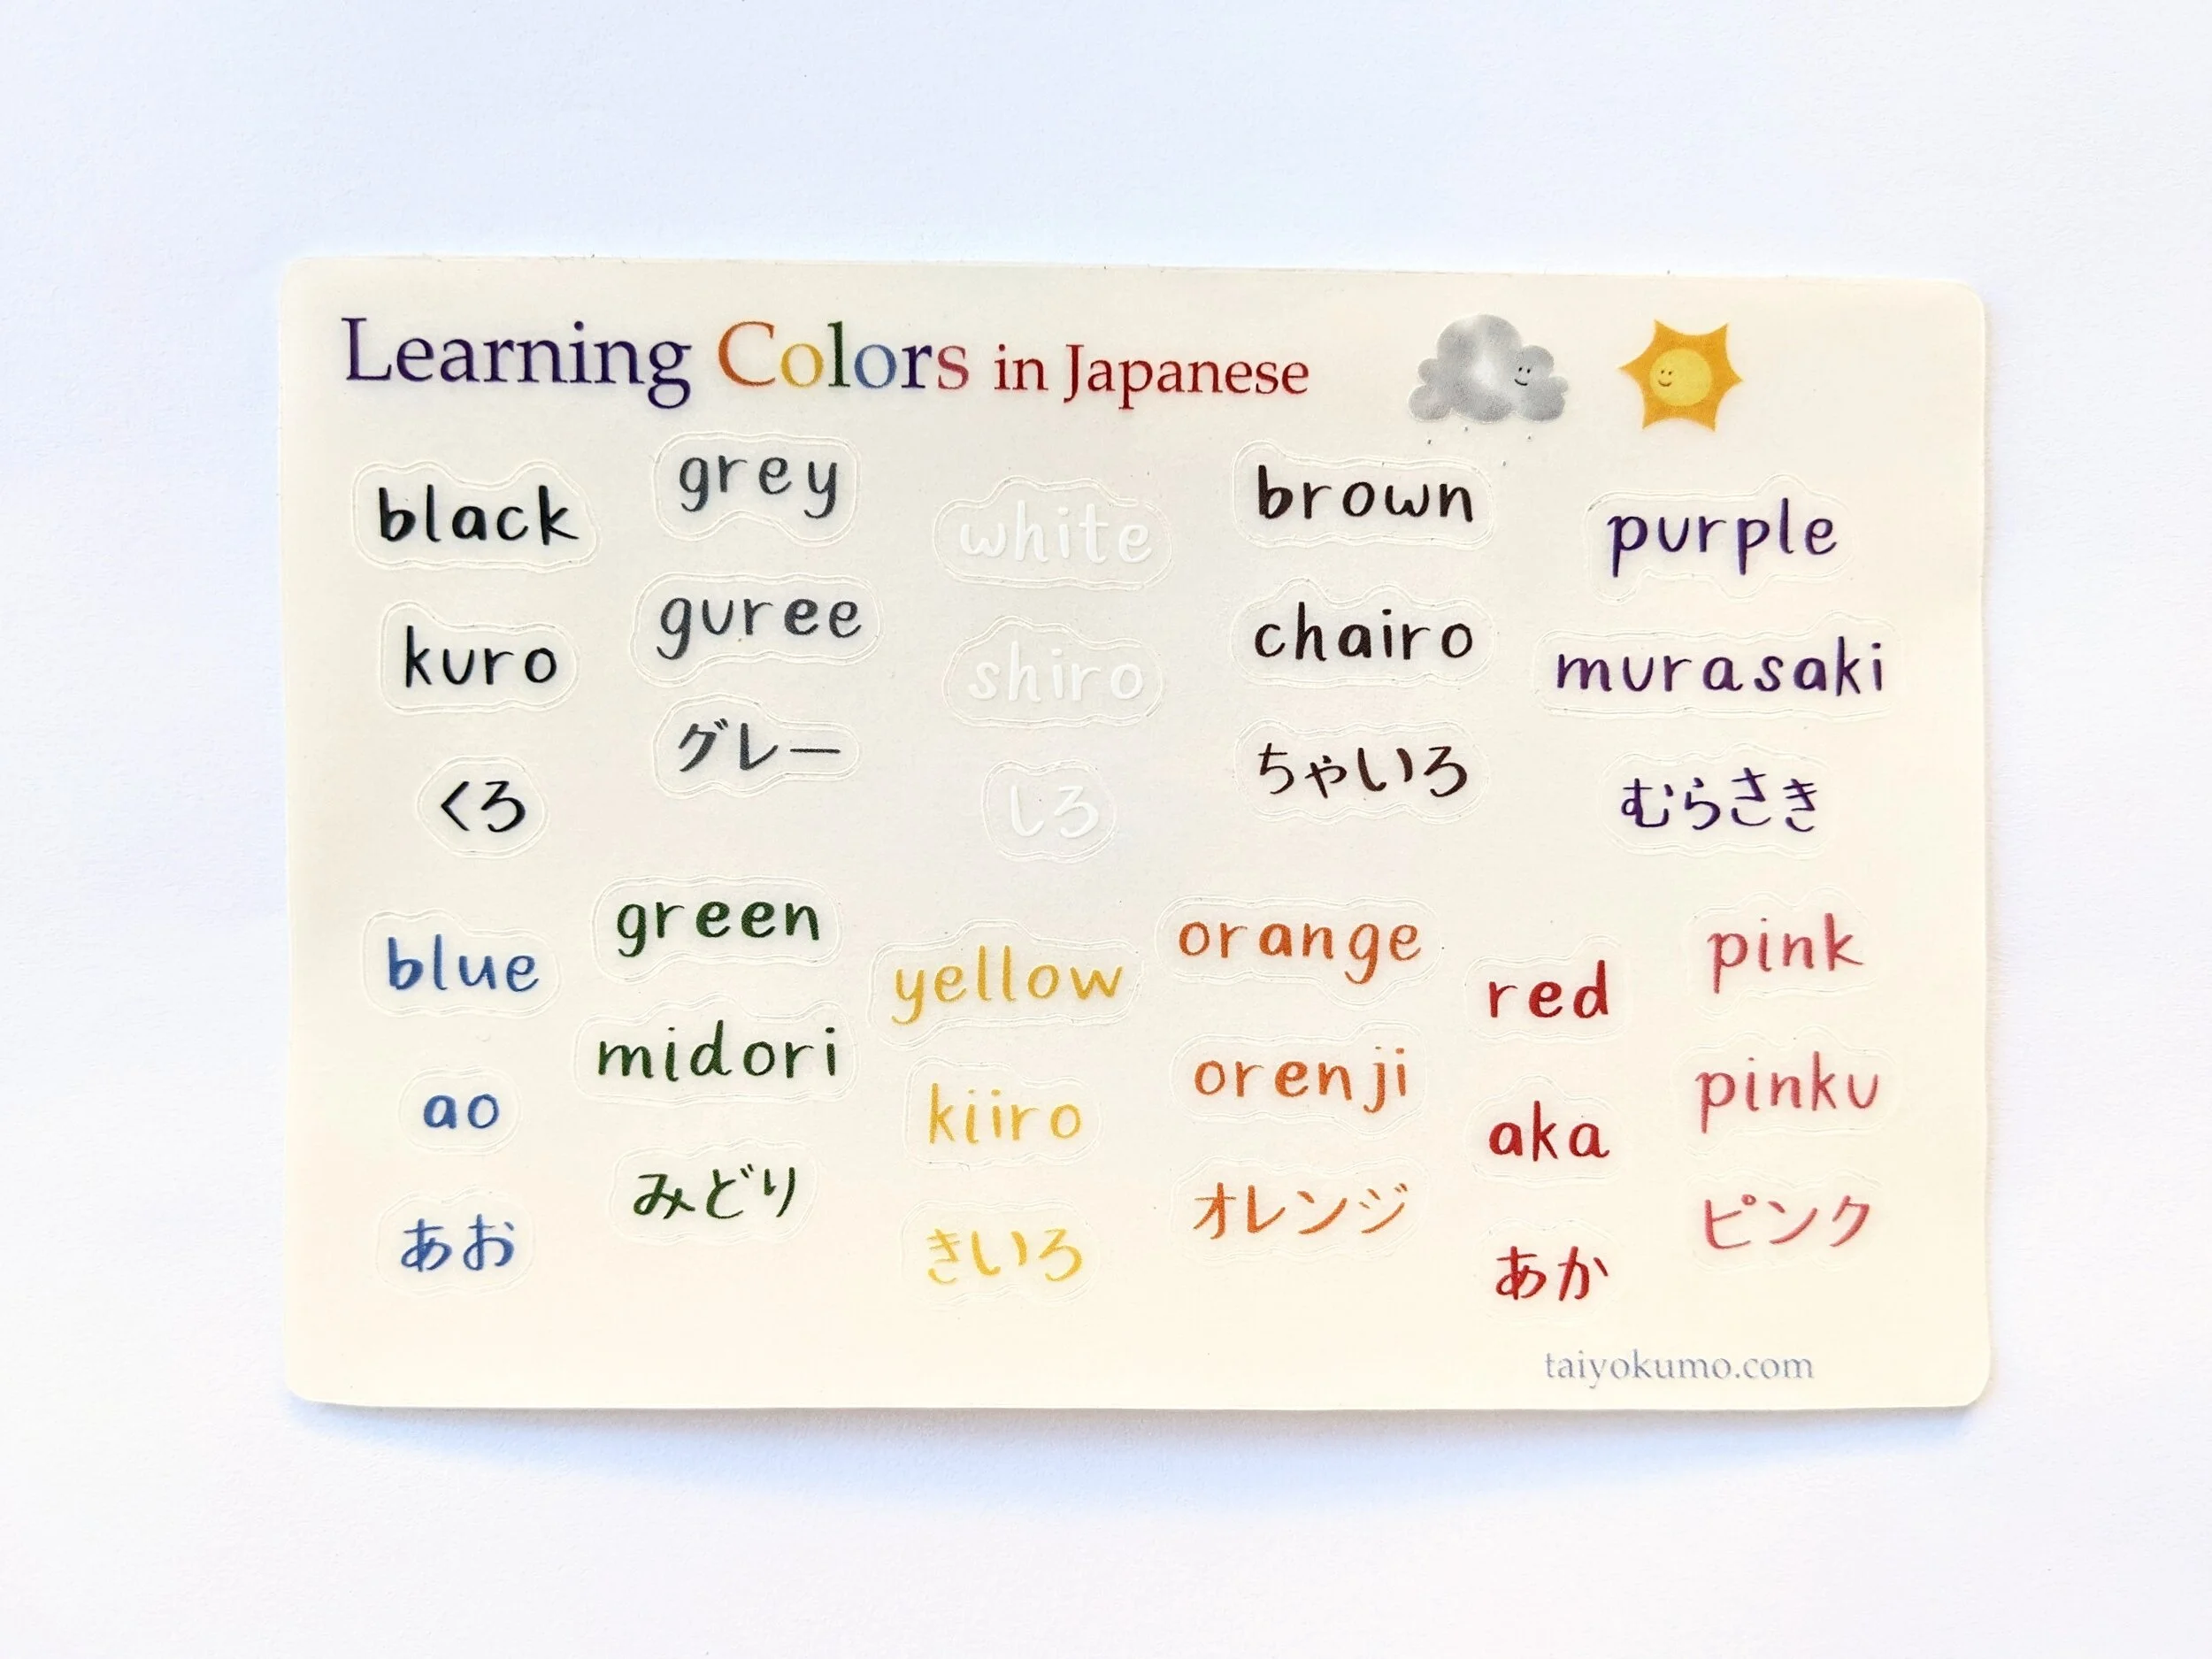 Learning Colors in Japanese
black
kuro
くろ
grey
guree
グレー
white
shiro
しろ
brown
chairo
ちゃいろ
purple
murasaki
むらさき
blue
ao
あお
green
midori
みどり
yellow
kiiro
きいろ
orange
orenji
オレンジ
red
aka
あか
pink
pinku
ピンク
taiyokumo.com